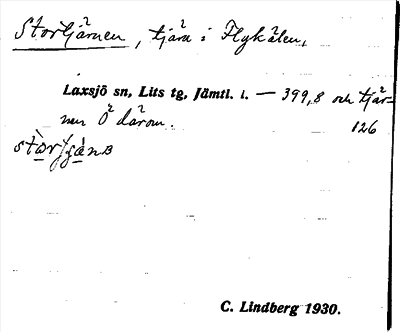 Stortjärnen, tjärn i Flykälen,
Laxsjö sn, Lits tg, Jämtl. l. — 399,8 och tjär=
nen Ö därom.
126
C. Lindberg 1930.